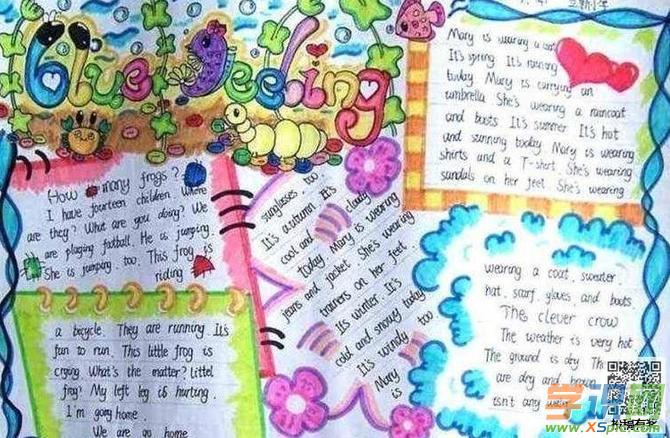 Blue Feeling
How many frogs?
I have fourteen children. Where
are they? What are you doing? We
are playing football. He is jumping.
She is jumping. too. This frog is
riding
a bicycle. They are running. It's
fun to run. This little frog is
crying. What's the matter? Littel
frog? My left leg is hurting.
I'm gong home.
We are go home
sunglasses. too.
It's autumn. It's
cool and cloudy
today. Mary is wearing
jeans and jacket. She's wearing
trainers on her feet.
Its winter. It's
cold and snowy today
It's windy too
Mary
is
Mary is wearing a
It's spring. It's raining
today. Mary is carrying an
umbrella. She's wearing a raincoat
and boots. It's summer. It's hot
and sunning today. Mary is wearing
shirts and a T-shirt. She's wearing
sandals on her feet. She's wearing
wearing a coat. sweater.
hat. scarf. gloves. and boots
The clever crow
The weather is very hot
The ground is dry.
are dry and
isn't any
学课网
www.XSpic.com